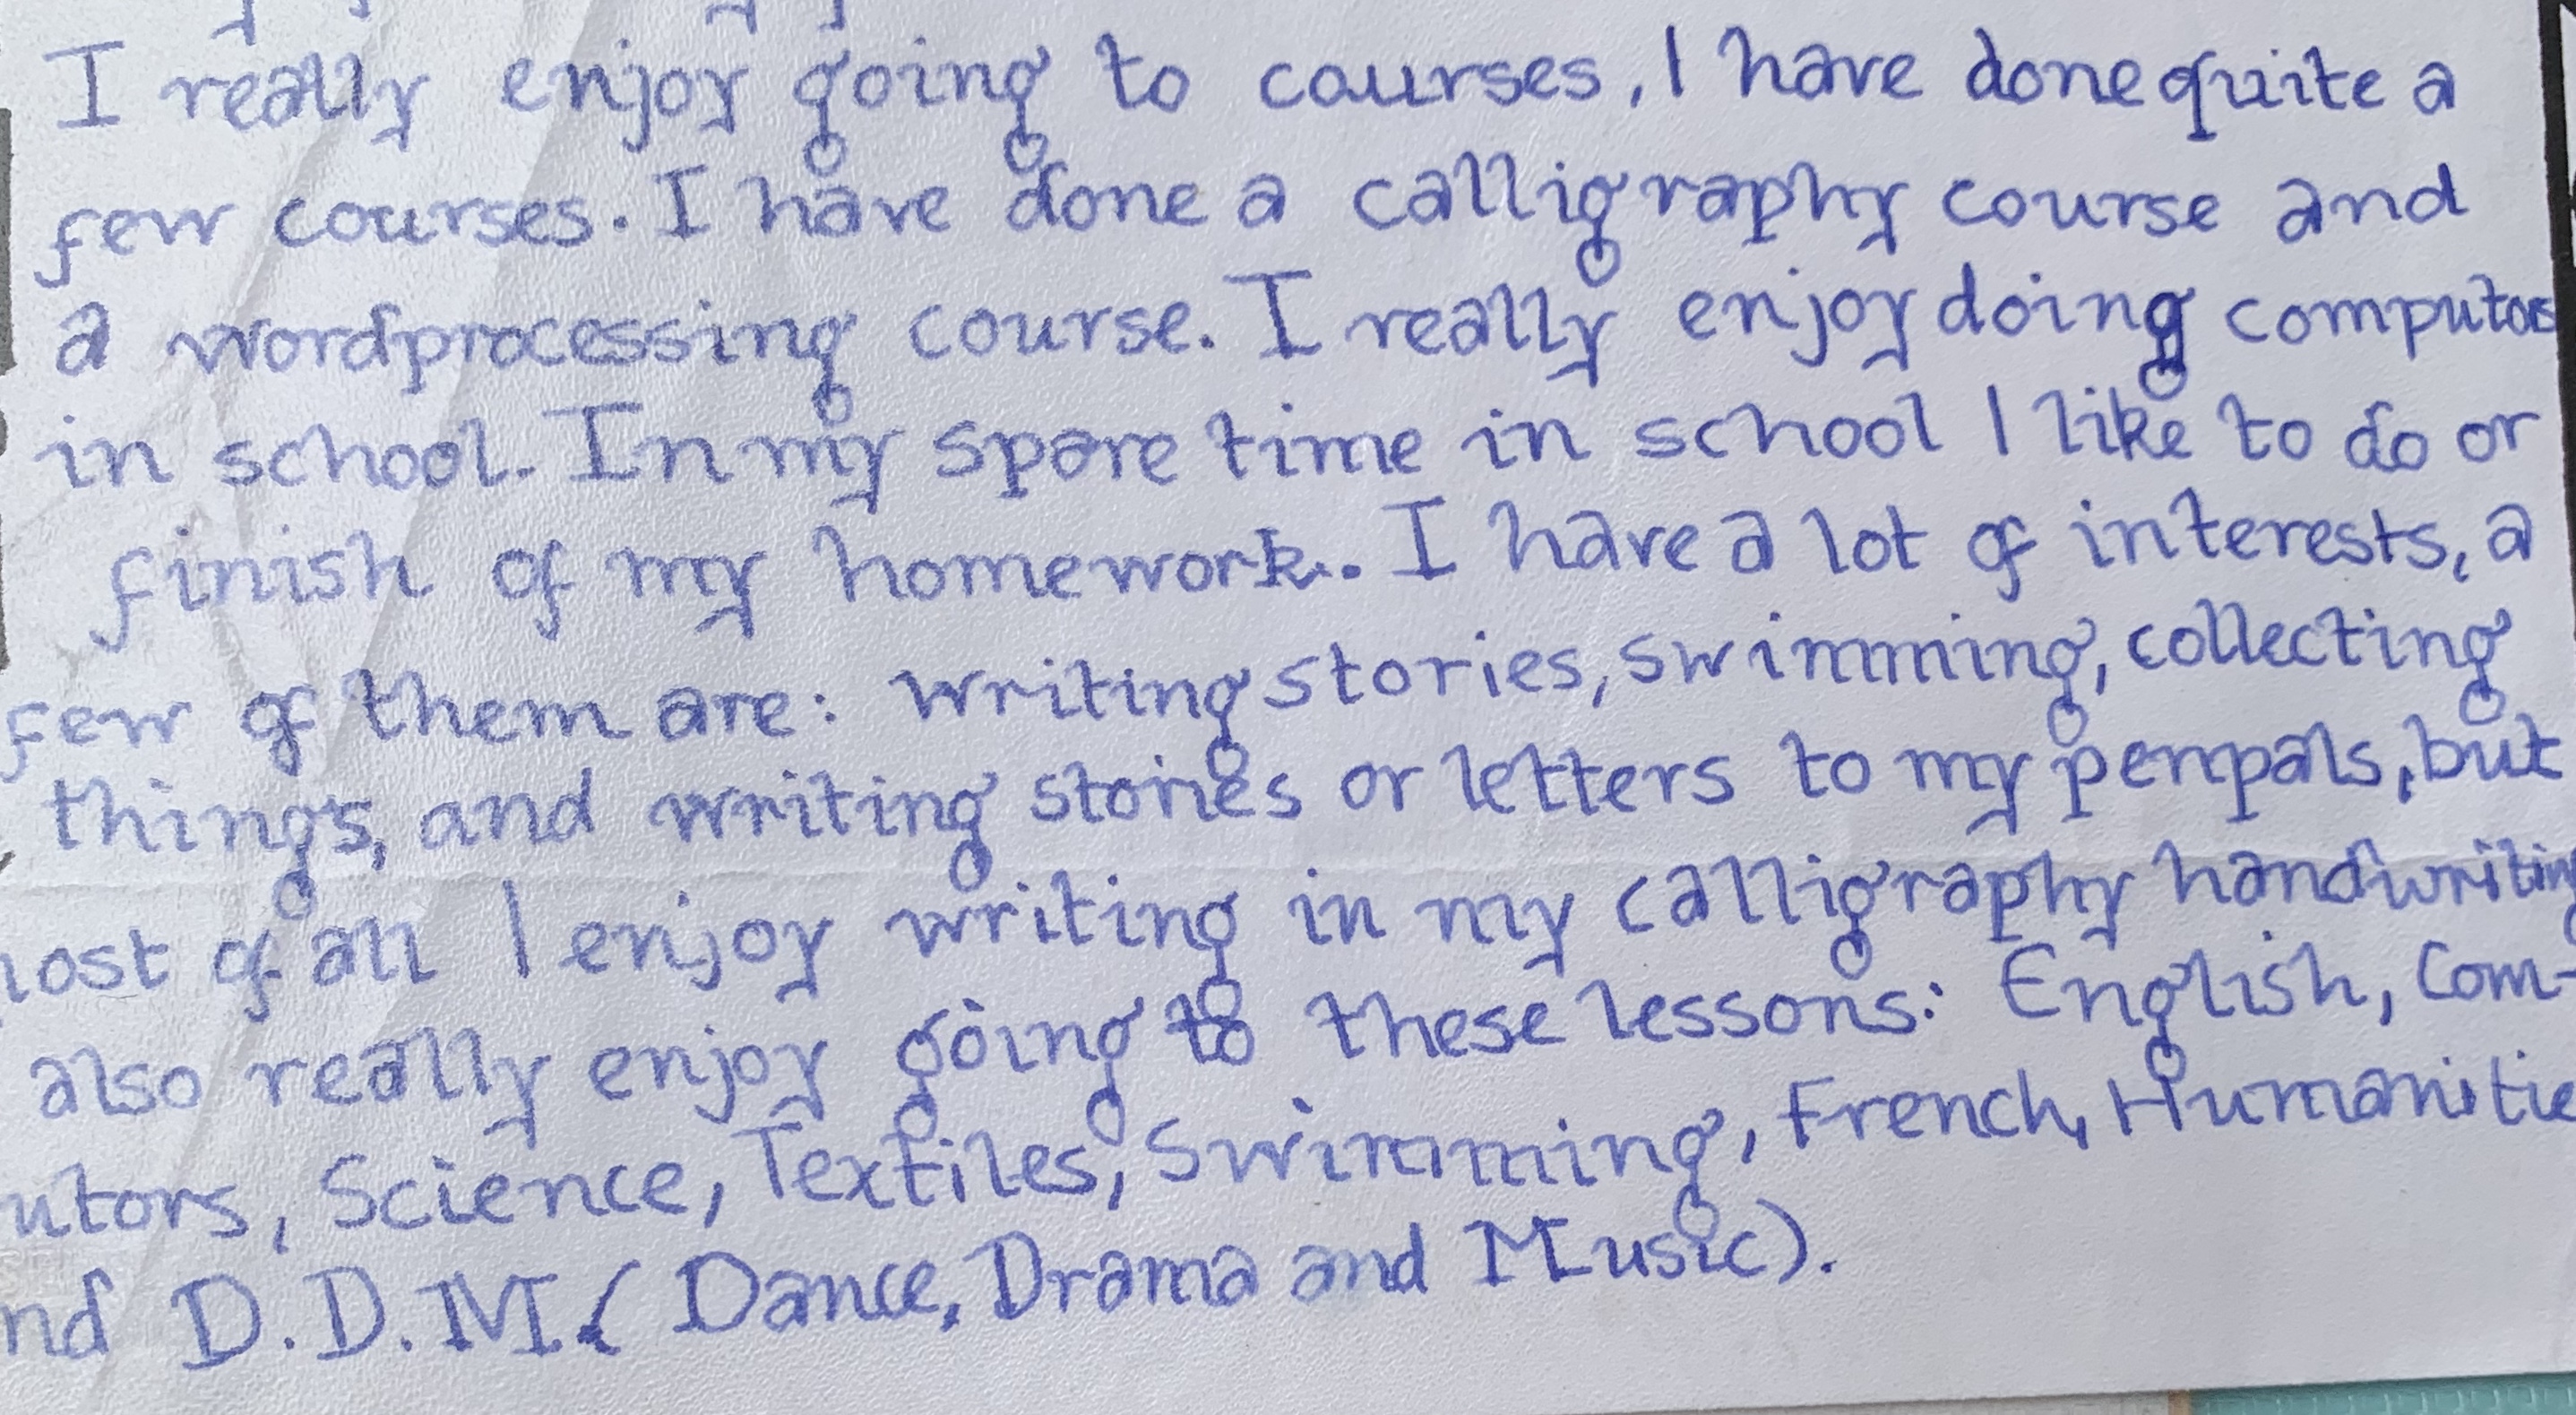 I really enjoy going to courses, I have done quite a
few courses. I have done a calligraphy course and
a wordprocessing course. I really enjoy doing computors
in school. In my spare time in school I like to do or
finish of my homework. I have a lot of interests, a
few of them are: writing stories, swimming, collecting
things, and writing stories or letters to my penpals, but
ost of all I enjoy writing in my calligraphy handwriting
also really enjoy going to these lessons: English, Com-
utors, Science, Textiles, Swimming, French, Humanitie
nd D.D.M. (Dance, Drama and Music).